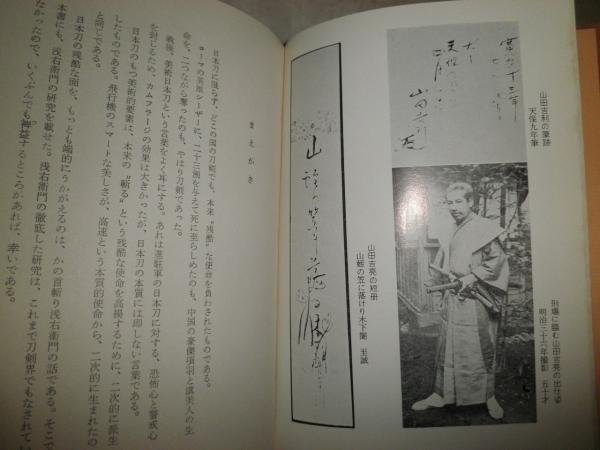 山田吉利の筆跡
天保九年筆
刑場に臨む山田吉亮の出仕姿
明治三十六年撮影 五十才
山田吉亮の短冊
山蛭の笠に落けり木下闇 至誠
まえがき
日本刀に限らず、どこの国の刀剣でも、本来“残酷”な使命を負わされたものである。
ローマの英雄シーザーに、二十三創を与えて死に至らしめたのも、中国の豪傑項羽と虞美人の生
命を、二つながら奪ったのも、やはり刀剣であった。
戦後、美術日本刀という言葉をよく耳にする。あれは進駐軍の日本刀に対する、恐怖心と警戒心
を封じるため、カムフラージの効果は大きかったが、日本刀の本質には即しない言葉である。
日本刀のもつ美術的要素は、本来の“斬る”という残酷な使命を高揚するために、二次的に派生
したものである。飛行機のスマートな美しさが、高速という本質的使命から、二次的に生まれたの
と同じである。
日本刀の残酷な面を、もっとも端的にうかがえるのは、かの首斬り浅右衛門の話である。そこで
本書にも、浅右衛門の研究を載せた。浅右衛門の徹底した研究は、これまで刀剣界でもなされてい
なかったので、いくぶんでも裨益するところがあれば、幸いである。